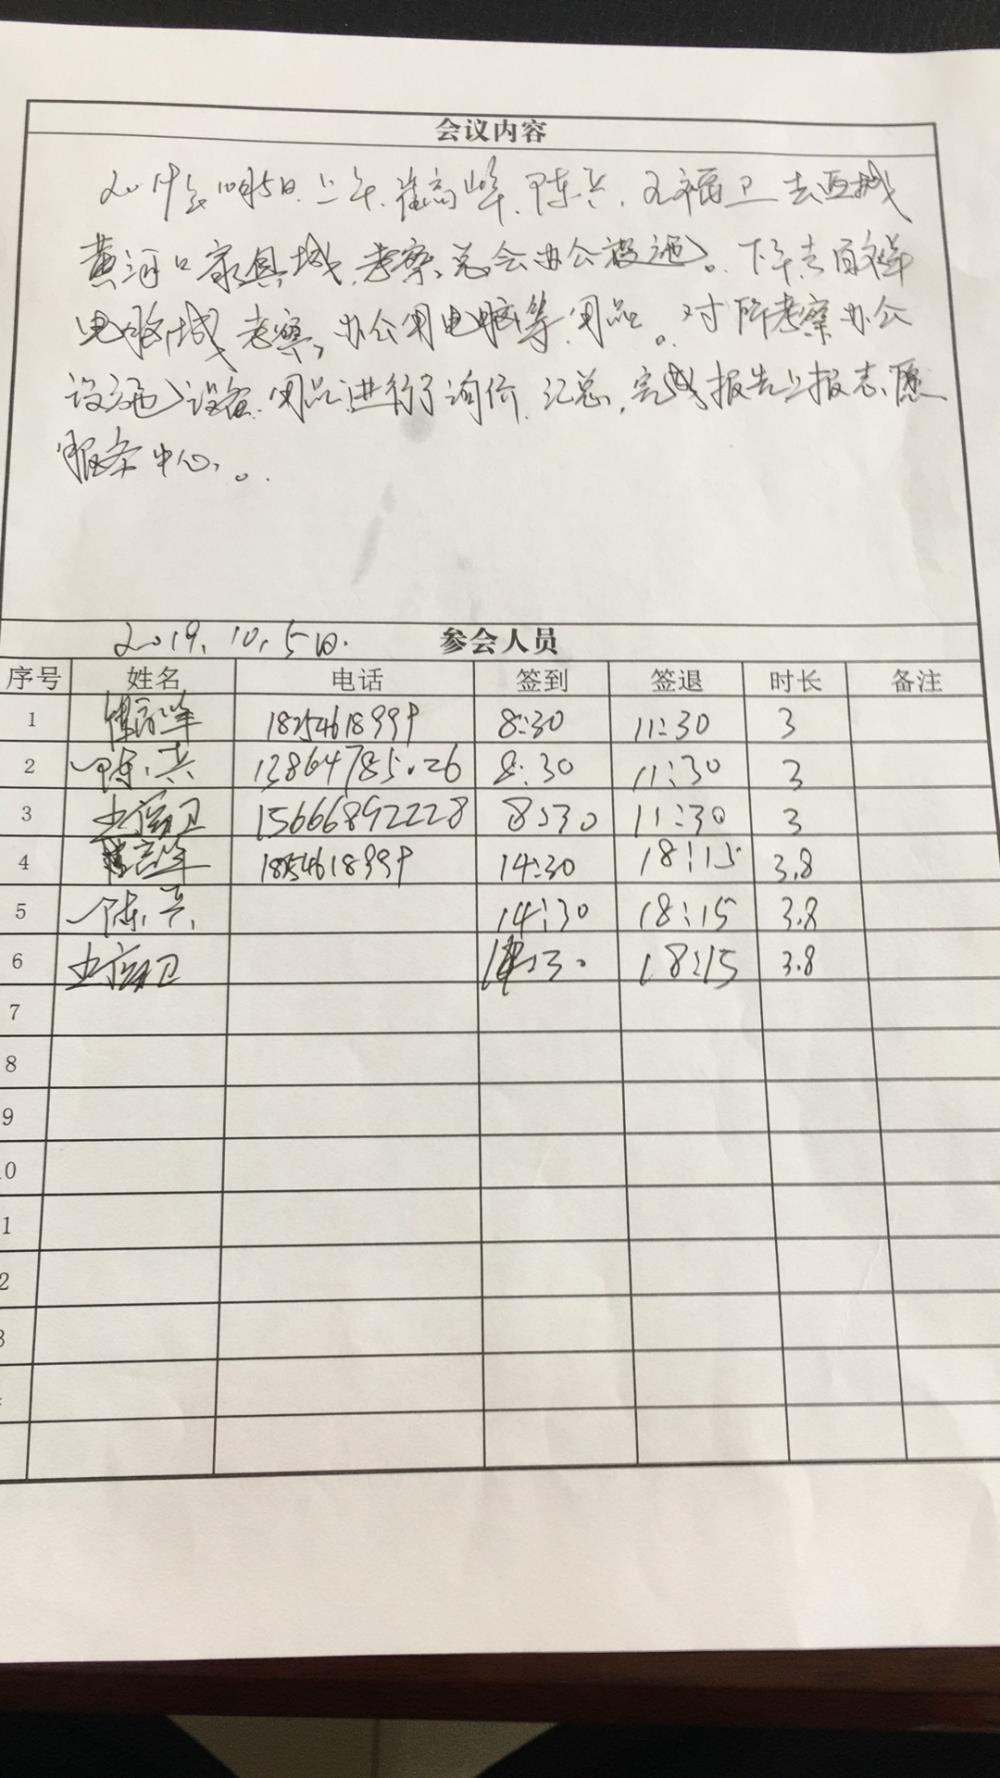 会议内容
2019年10月5日上午,崔高峰、陈兵、王福卫去西城
黄河口家具城,考察总会办公设施。下午去百文祥
电脑城考察办公用电脑等用品。对所考察办公
设施、设备、用品进行了询价、汇总,完成报告上报志愿
服务中心。
2019.10.5日. 参会人员
序号 姓名 电话 签到 签退 时长 备注
1 崔高峰 18254618999 8:30 11:30 3
2 陈兵 13864785026 8:30 11:30 3
3 王福卫 15666892228 8:30 11:30 3
4 崔高峰 18254618999 14:30 18:15 3.8
5 陈兵 14:30 18:15 3.8
6 王福卫 14:30 18:15 3.8
7
8
9
0
1
2
3